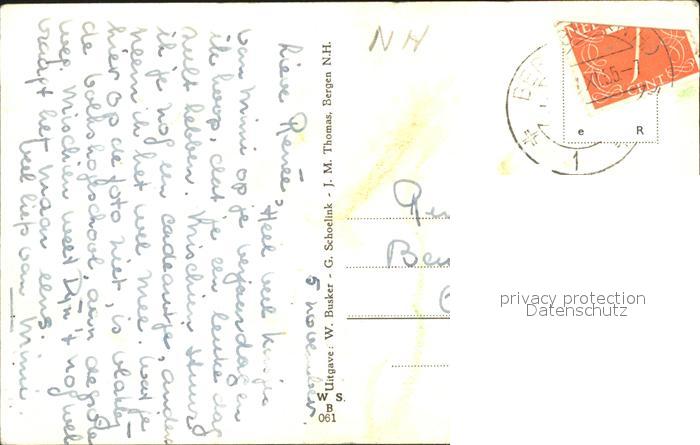 5 november
Lieve Renée, Heel veel kusjes
van Mimi op je verjaardag en
ik hoop, dat je een leuke dag
zult hebben. Misschien stuur
ik je nog een cadeautje, anders
neem ik het wel mee. Wat je
hier op de foto ziet, is vlakbij
de volkshogeschool, aan de grote
weg. Misschien weet Tijn 't nog wel
vraagt het maar eens.
Veel liefs van Mimi.
Uitgave: W. Busker - G. Schoelink - J. M. Thomas, Bergen N.H.
W S.
B
061
NH
NEDER
1
CENT
BER
55-
1
e R
Ren
Ber
privacy protection
Datenschutz